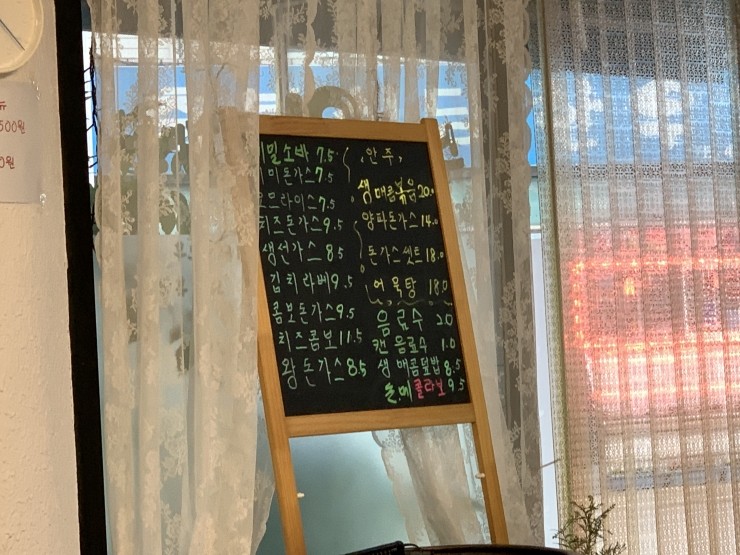 500원
0원
밀소바 7.5
미돈가스 7.5
므라이스 7.5
치즈돈가스 9.5
생선가스 8.5
김치라베 9.5
콤보돈가스 9.5
치즈콤보 11.5
왕돈가스 8.5
안주
생매콤볶음 20.0
양파돈가스 14.0
돈가스셋트 18.0
어묵탕 18.0
음료수 2.0
캔음료수 1.0
생매콤덮밥 8.5
콜라보 9.5